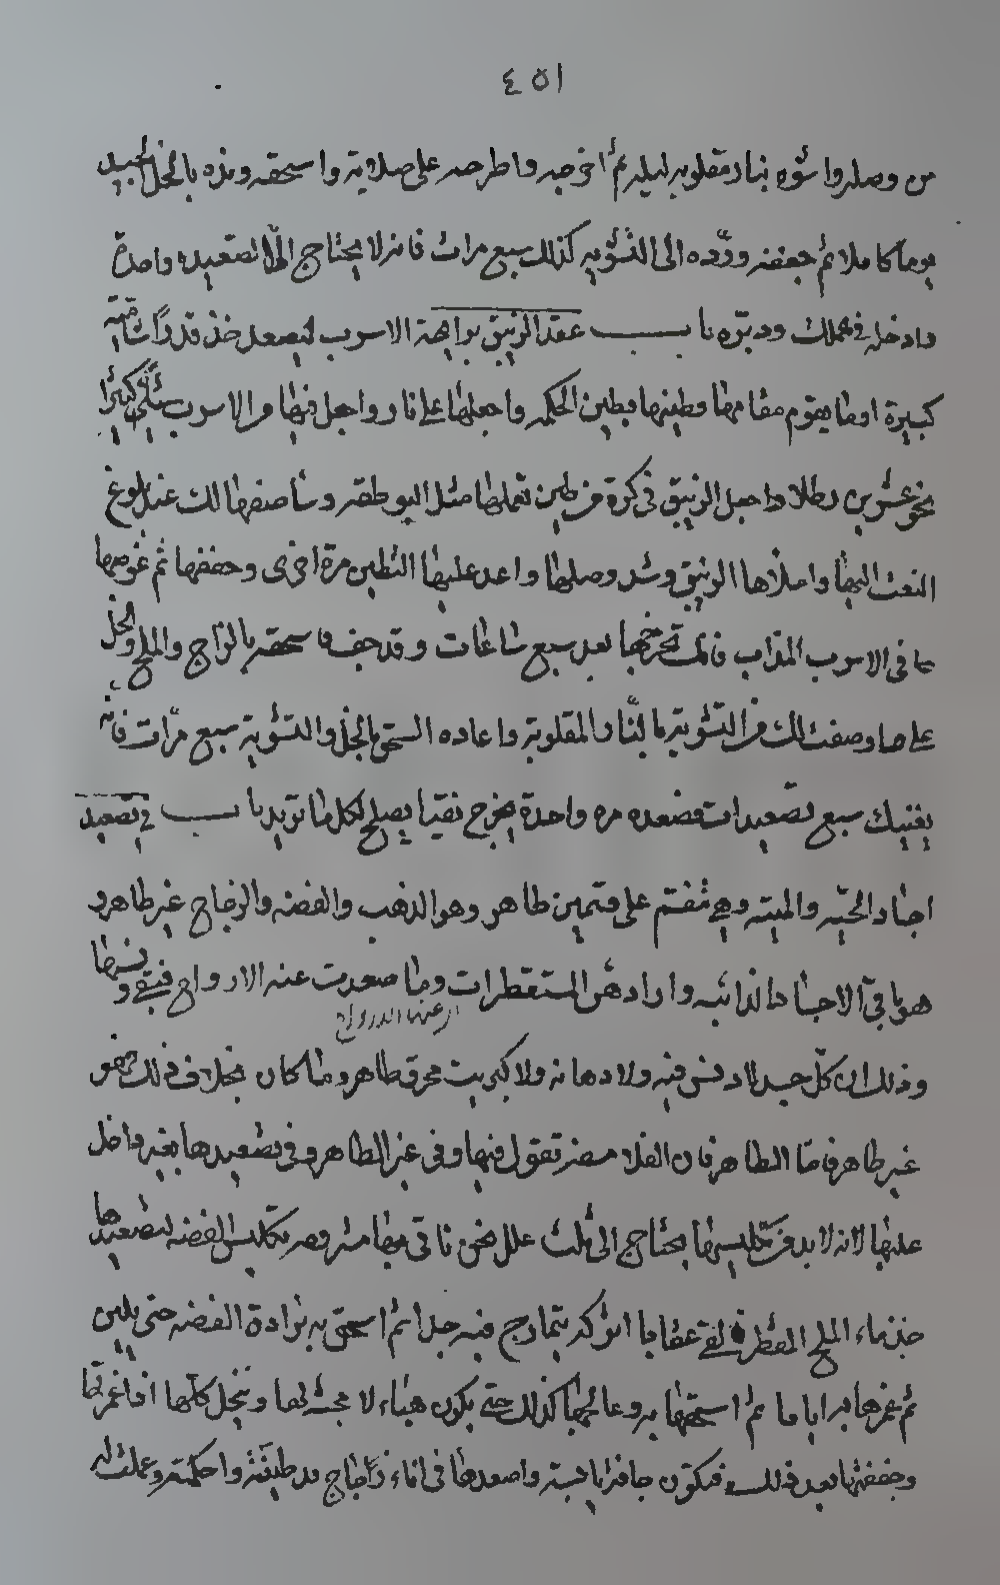 ٤٥١
من وصله واشوه بنار مقلوبه ليله ثم اخرجه واطرحه على صلايه واسحقه ونده بالخل الجيد
يوما كاملا ثم جففه وردّه الى التشويه كذلك سبع مرات فانه لا يحتاج الّا لتصعيده واحدة
وادخله في عملك ودبّره باب عقد الزئبق برايحة الاسرب ليصعد خذ قدرا
كبيرة او ما يقوم مقامها وطينها بطين الحكمه واجعلها على نار واجعل فيها من الاسرب شيئا كثيرا
نحو عشرين رطلا واجعل الزئبق في كرة من طين تعملها مثل البوطقه وسأصفها لك عند بلوغ
النعت اليها واملأها الزئبق وشد وصلها واعد عليها التطين مرة اخرى وجففها ثم غوصها
في الاسرب المذاب فانك تخرجها بعد سبع ساعات وقد جف فاسحقه بالزاج والملح والخل
على ما وصفت لك من التشوية بالنّار المقلوبة واعاده السحق بالخل والتشوية سبع مرّات فانه
يغنيك سبع تصعيدات فصعده مره واحدة يخرج نقيا يصلح لكل ما تريد باب في تصعيد
اجساد الحيّه والميته وهي تنقسم على قسمين طاهر وهو الذهب والفضه والزجاج غير طاهر و
هو باقي الاجساد الذائبه واراد هن المستقطرات وما صعدت عنه الارواح فبقي
عنها الارواح
وذلك ان كل جسد لا دنس فيه ولا دهانه ولا كبريت محرق طاهر وما كان بخلاف ذلك فهو
غير طاهر فامّا الطاهر فان الفلاسفه تقول فيها وفي غير الطاهر وفي تصعيدها بغير داخل
عليها لانه لا بد في تكليسها يحتاج الى ثلث علل نحن ناتي بها تكليس الفضه لتصعيدها
خذ ماء الملح المقطر جدا ثم اسحق به برادة الفضه حتى يلين
ثم غمرها به اياما ثم اسحقها به وعالجها كذلك حتى يكون هباء لا مجسّ لها وينخل كلها اذا غمرتها
وجففتها بعد ذلك فيكون يابسة واصعدها في اناء زجاج مد طينته واحكمته وعملت له